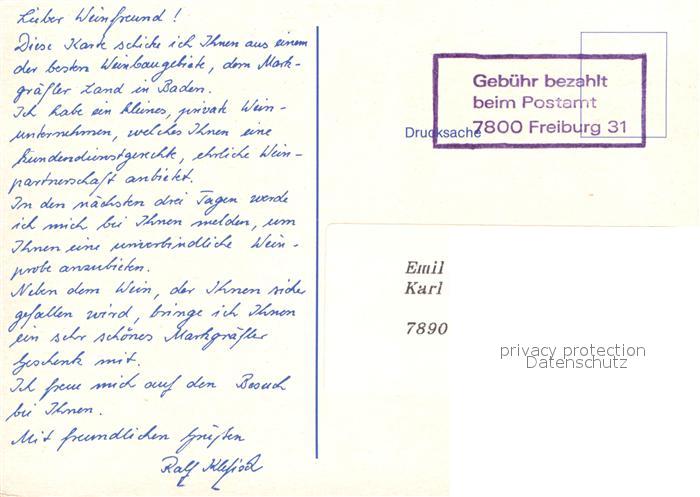 Lieber Weinfreund!
Diese Karte schicke ich Ihnen aus einem
der besten Weinbaugebiete, dem Mark-
gräfler Land in Baden.
Ich habe ein kleines, private Wein-
unternehmen, welches Ihnen eine
kundendienstgerechte, ehrliche Wein-
partnerschaft anbietet.
In den nächsten drei Tagen werde
ich mich bei Ihnen melden, um
Ihnen eine unverbindliche Wein-
probe anzubieten.
Neben dem Wein, der Ihnen sicher
gefallen wird, bringe ich Ihnen
ein sehr schönes Markgräfler
Geschenk mit.
Ich freue mich auf den Besuch
bei Ihnen.
Mit freundlichen Grüßen
Ralf
Gebühr bezahlt
beim Postamt
7800 Freiburg 31
Drucksache
Emil
Karl
7890
privacy protection
Datenschutz